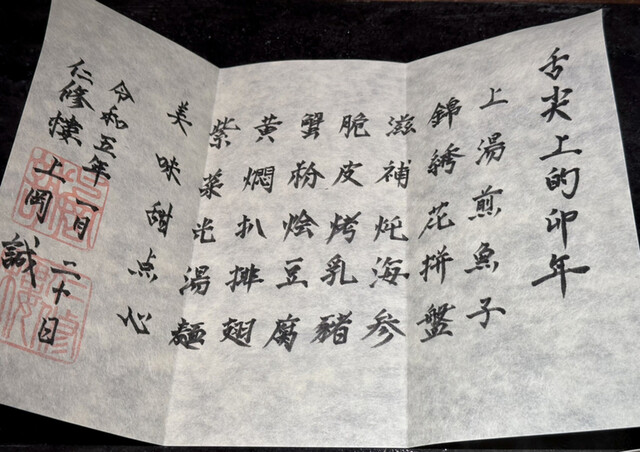 舌尖上的卯年
上湯煎魚子
錦綉花拼盤
滋補炖海参
脆皮烤乳豬
蟹粉烩豆腐
黄燜扒排翅
紫菜光湯麺
美味甜点心
令和五年一月二十日
仁修樓 上岡 誠